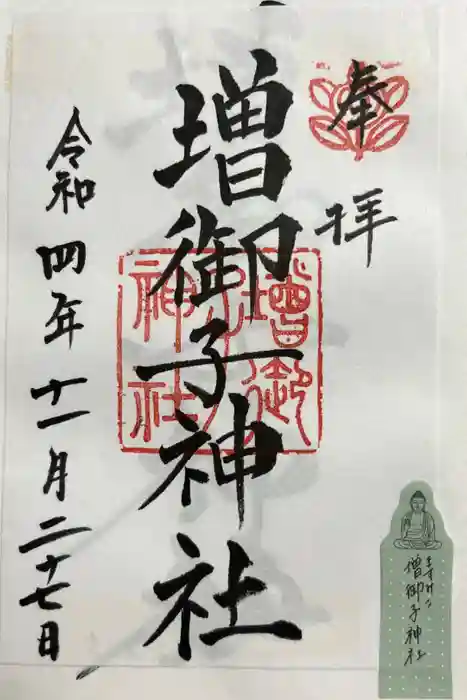 奉
拝
増御子神社
令和四年十一月二十七日
増御
神社
増御子神社